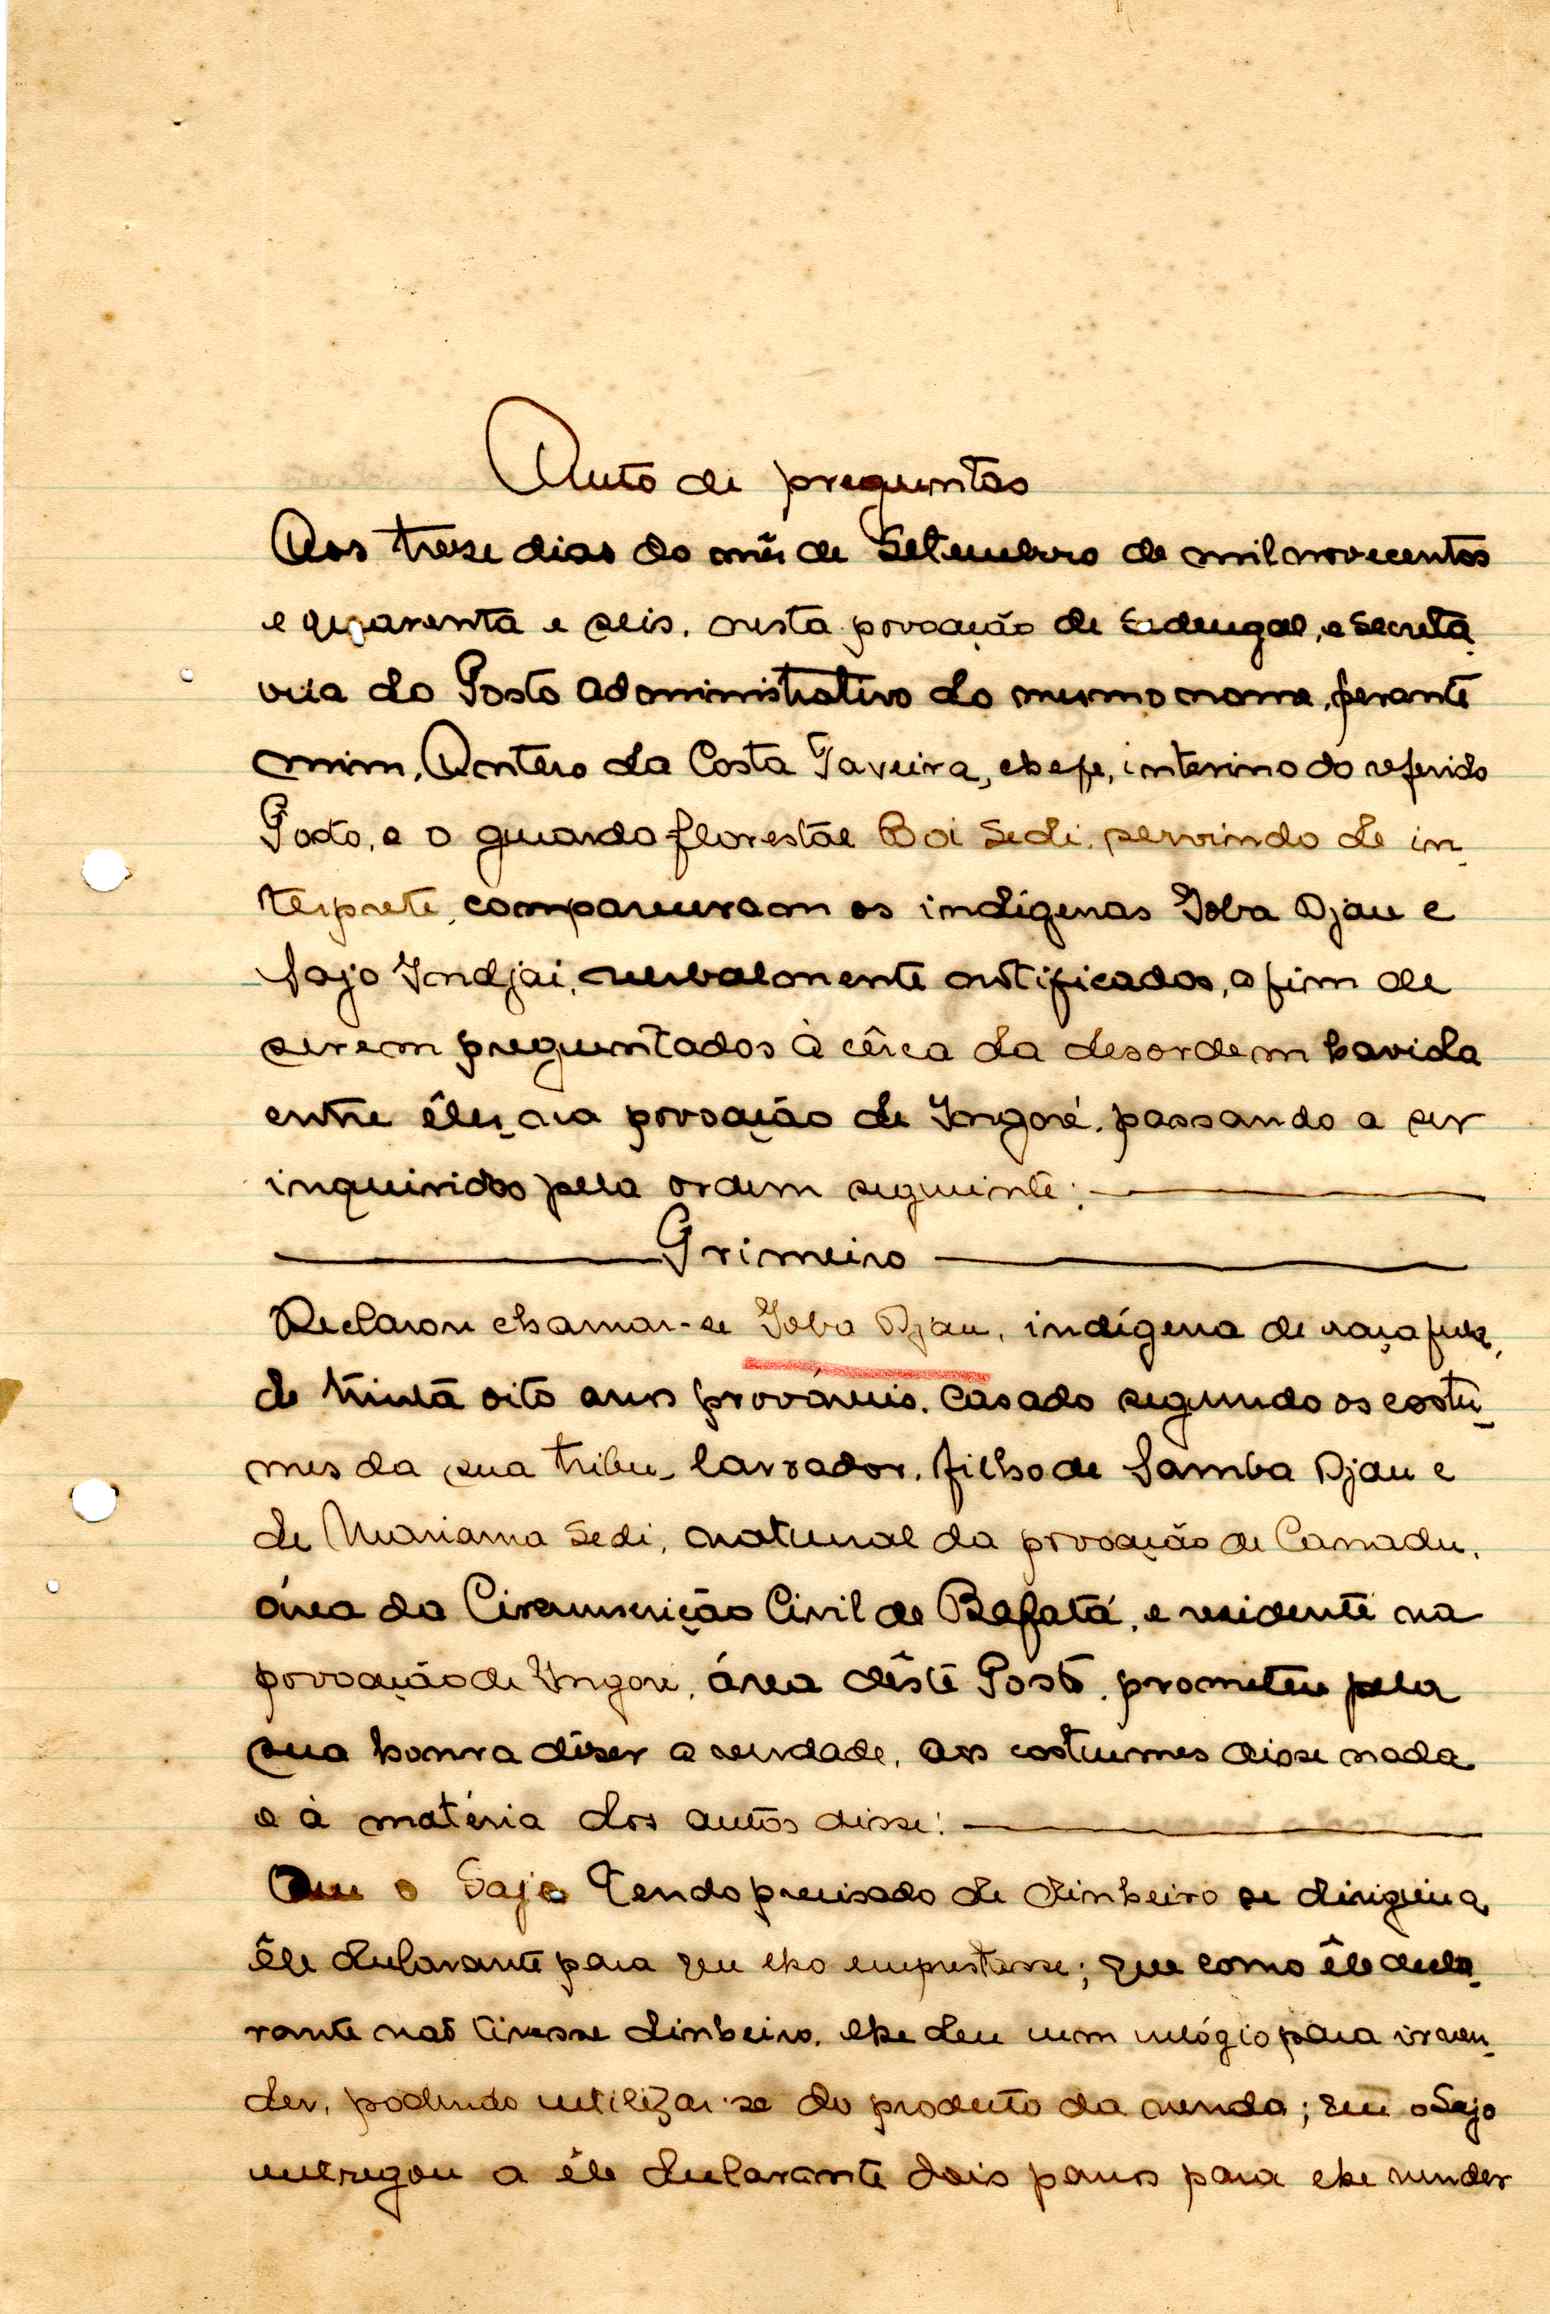 Auto de preguntas
Aos treze dias do mês de Setembro de mil novecentos
e quarenta e seis, nesta povoação de Sedengal, e Secreta-
ria do Posto Administrativo do mesmo nome, perante
mim, Antero da Costa Taveira, chefe, interino do referido
Posto, e o guarda florestal Boi Sedi, servindo de in-
terprete, compareceram os indígenas Ioba Djau e
Sajo Indjai, verbalmente notificados, a fim de
serem preguntados à cêrca da desordem havida
entre êles, na povoação de Ingoré, passando a ser
inquiridos pela ordem seguinte:
Primeiro
Declarou chamar-se Ioba Djau, indígena de raça fula,
de trinta oito anos prováveis, casado segundo os costu-
mes da sua tribu, lavrador, filho de Samba Djau e
de Mariama Sedi, natural da povoação de Canadu,
área da Circunscrição Civil de Bafatá, e residente na
povoação de Ingoré, área dêste Posto, prometeu pela
sua honra dizer a verdade, aos costumes disse nada
e à matéria dos autos disse:
Que o Sajo tendo precisado de dinheiro se dirigiu a
êle declarante para que lho emprestasse; que como êle decla-
rante não tivesse dinheiro, lhe deu um relógio para ir ven-
der, podendo utilizar-se do produto da venda; que o Sajo
entregou a êle declarante dois panos para lhe vender